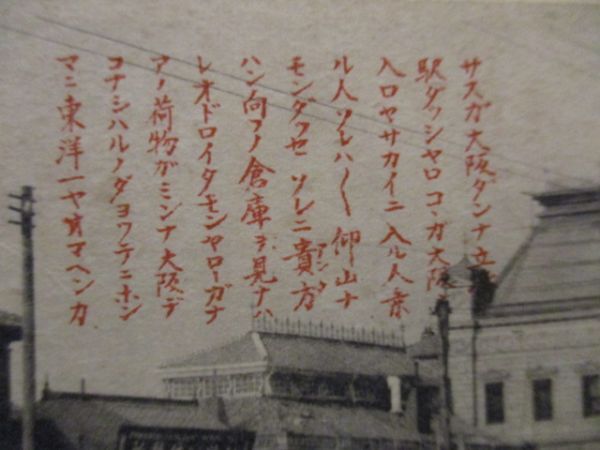 サスガ大阪ダンナ立
駅ダッシャロコヽガ大阪
入口ヤサカイニ入ル人乗
ル人ソレハ〳〵仰山ナ
モンダッセソレニ貴方
ハン向フノ倉庫ヲ見ナハ
レオドロイタモンヤローガナ
アノ荷物ガミンナ大阪デ
コナシハルノダヨッテニホン
マニ東洋一ヤオマヘンカ